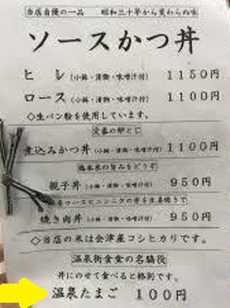 当店自慢の一品 昭和三十年から変わらぬ味
ソースかつ丼
ヒレ(小鉢・漬物・味噌汁付) 1150円
ロース(小鉢・漬物・味噌汁付) 1100円
◇生パン粉を使用しています。
定番の卵とじ
煮込みかつ丼(小鉢・漬物・味噌汁付) 1100円
の旨みをどうぞ
親子丼(小鉢・漬物・味噌汁付) 950円
焼き肉丼(小鉢・漬物・味噌汁付) 950円
◇当店の米は会津産コシヒカリです。
温泉街食堂の名脇役
丼にのせて食べると格別です。
温泉たまご 100円